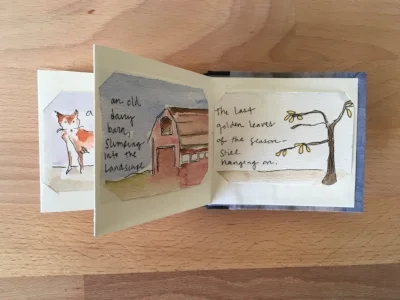 a
an old
dairy
barn,
Slumping
into the
Landscape
The last
golden leaves
of the season—
Still
hanging on.